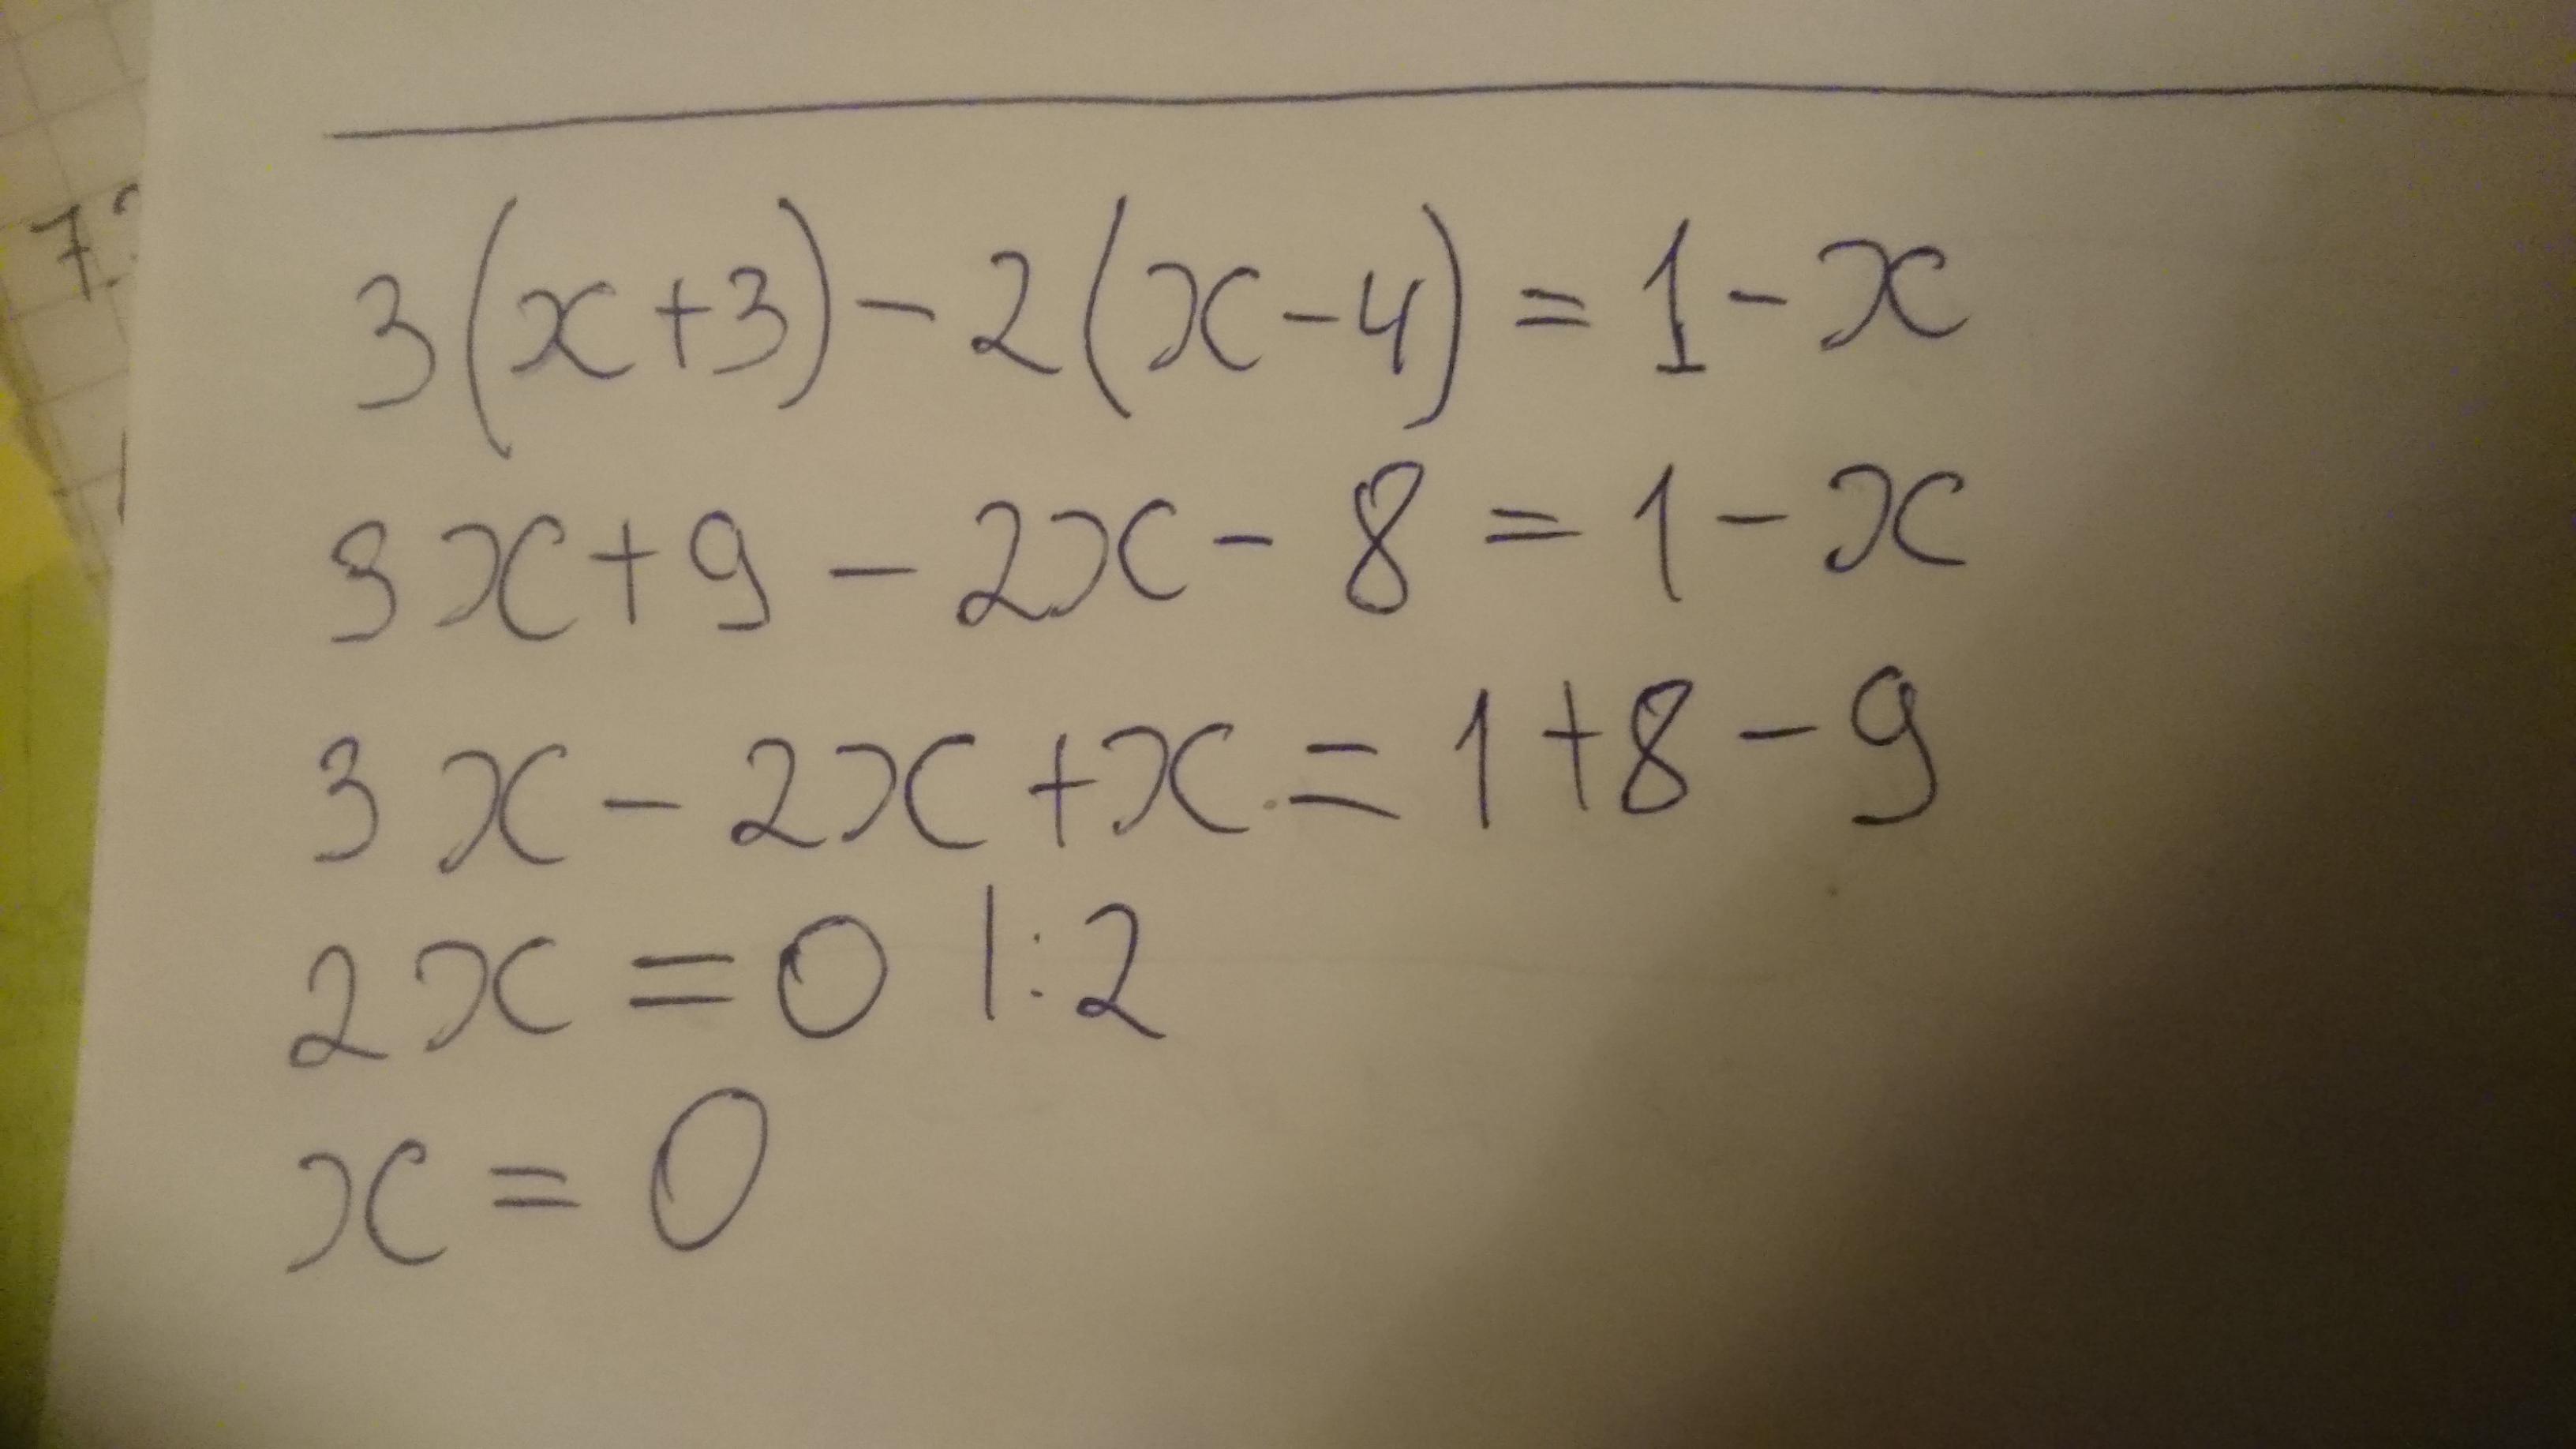 3(x+3)-2(x-4)=1-x
3x+9-2x-8=1-x
3x-2x+x=1+8-9
2x=0 |:2
x=0